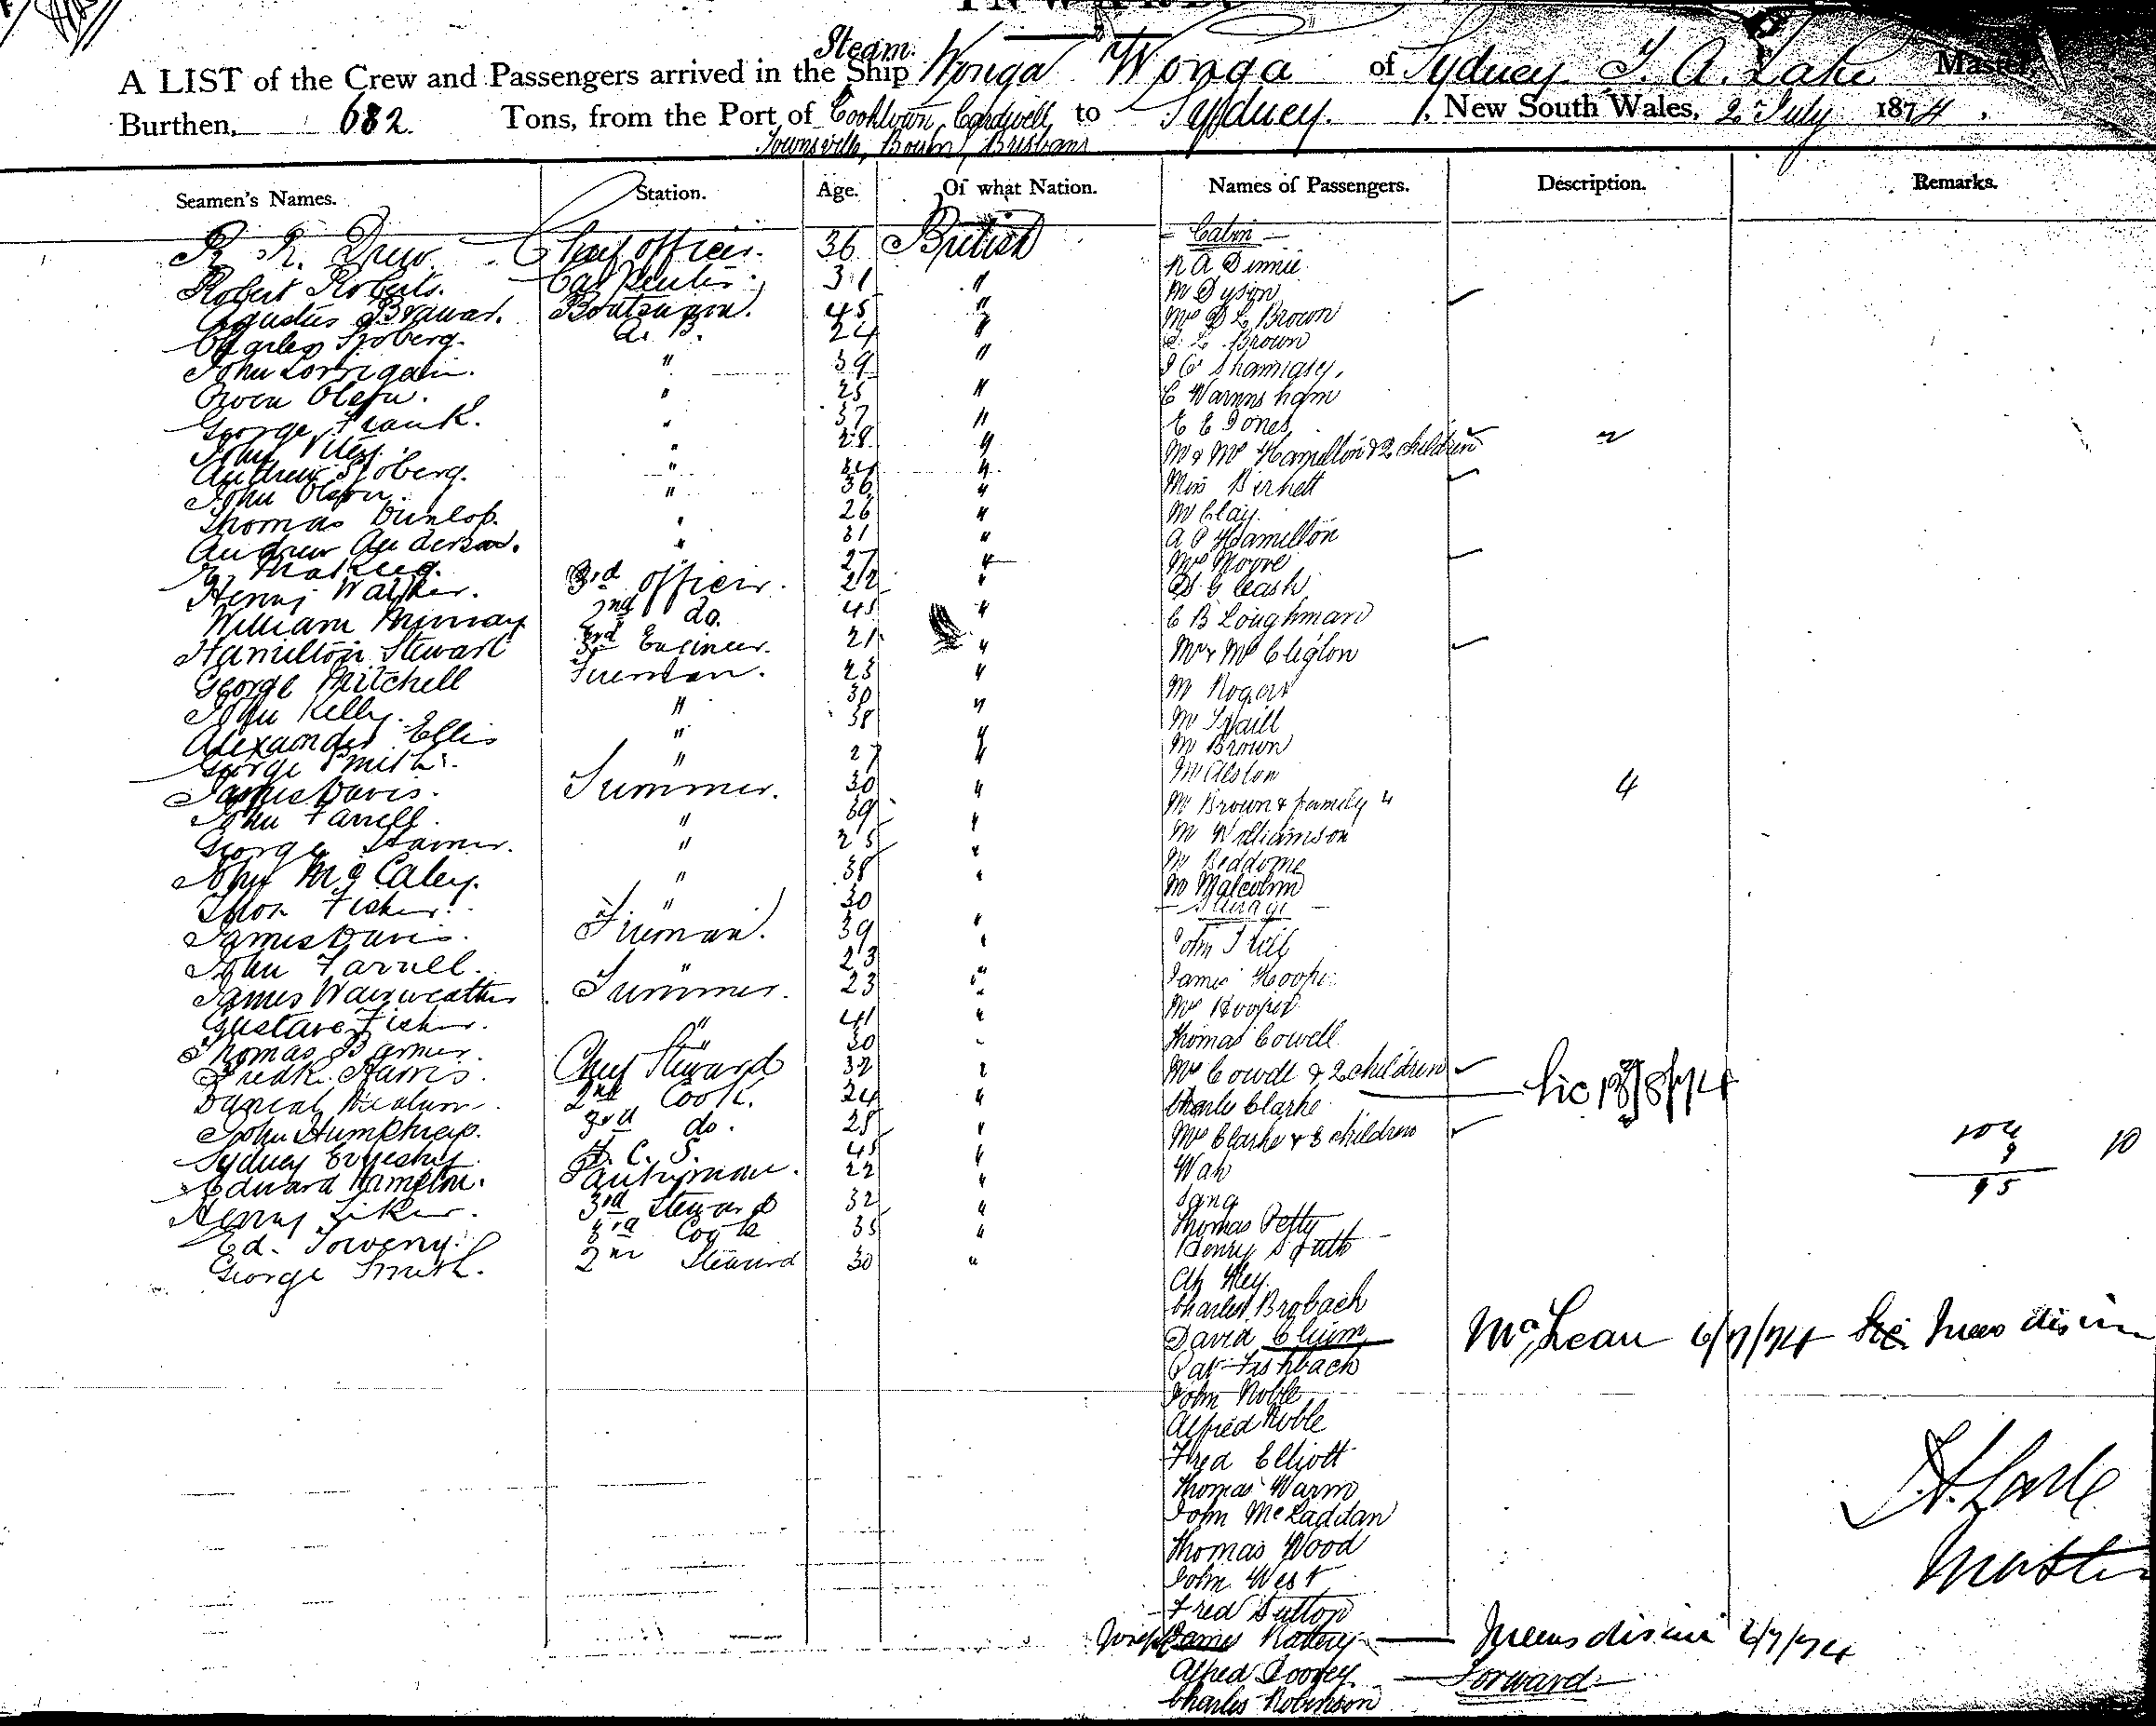 INWARD.
A LIST of the Crew and Passengers arrived in the Steam Ship Wonga Wonga of Sydney T. A. Lake Master
Burthen, 682 Tons, from the Port of Cooktown, Cardwell, to Sydney, New South Wales, 2 July 1874,
Townsville, Bowen, Brisbane
Seamen's Names. Station. Age. Of what Nation. Names of Passengers. Description. Remarks.
Cabin
R. R. Drew Chief officer. 36 British
R A Dinnie
Robert Roberts. Carpenter 31 "
Mr Dyson
Agustus Brauar. Boatswain. 45 "
Mrs D L Brown
Charles Sjoberg. A. B. 24 "
D. L. Brown
John Lorrigain. " 39 "
Owen Olsen. " 25 "
George Frank. " 37 "
E E Jones
John " 28 "
Mr & Mrs Hamilton & 2 children 2
Andrew Sjoberg. " "
Miss Birnett
John Olsen. " 36 "
Mr Clay.
Thomas Dunlop. " 26 "
A P Hamilton
Andrew Anderson. " 31 "
Mrs Moore
27 "
D. G Cash
Henry Walker. 3rd officer. 22 "
C B Loughman
William Murray 2nd do. 45 "
Hamilton Stewart 3rd Engineer. 21 "
Mr & Mrs
George Mitchell Fireman. 23 "
Mr Rogers
John Kelly. " 30 "
Alexander Ellis " 38 "
Mr Brown
George Smith. " 27 "
Mr Alston
James Davis. Trimmer. 30 "
Mr Brown & family 4 4
John Farrell. " 39 "
Mr Williamson
George " 25 "
Mr Beddome
John McCaley. " 38 "
Mr Malcolm
Thos Fisher. " 30
Steerage
James Davis. Fireman. 39 "
John
John Farrell. " 23 "
James Hooper
James Wainweather Trimmer. 23 "
Mrs Hooper
Gustave Fisher. " 41 "
Thomas Cowell
Thomas Barner. " 30 "
Mrs Cowell & 2 children
Fredk. Harris. Chief Steward 32 "
Charles Clarke
Duncal 2nd Cook. 24 "
Mrs Clarke & 3 children
John Humphrep. 3rd do. 25 "
Wah
Sydney F. C. S. 45 "
Sang
Edward Hampton. Pantryman. 22 "
Thomas Petty
Henry Liker. 3rd Steward 32 "
Henry
Ed. Towerry. 3rd Cook 35 "
Ah Hey.
George Smith. 2nd Steward 30 "
18/8/74
104
9
95
10
Charles Brobach
David Clium McLean 6/7/74
Pat Fishbach
John Noble
Alfred Noble
Fred Elliott
Thomas Warm
John McLaddan
Thomas Wood
John West
Fred Sutton
Joseph James Rattery 2/7/74
Alfred Forward
Charles Robinson
T. A. Lake
Master